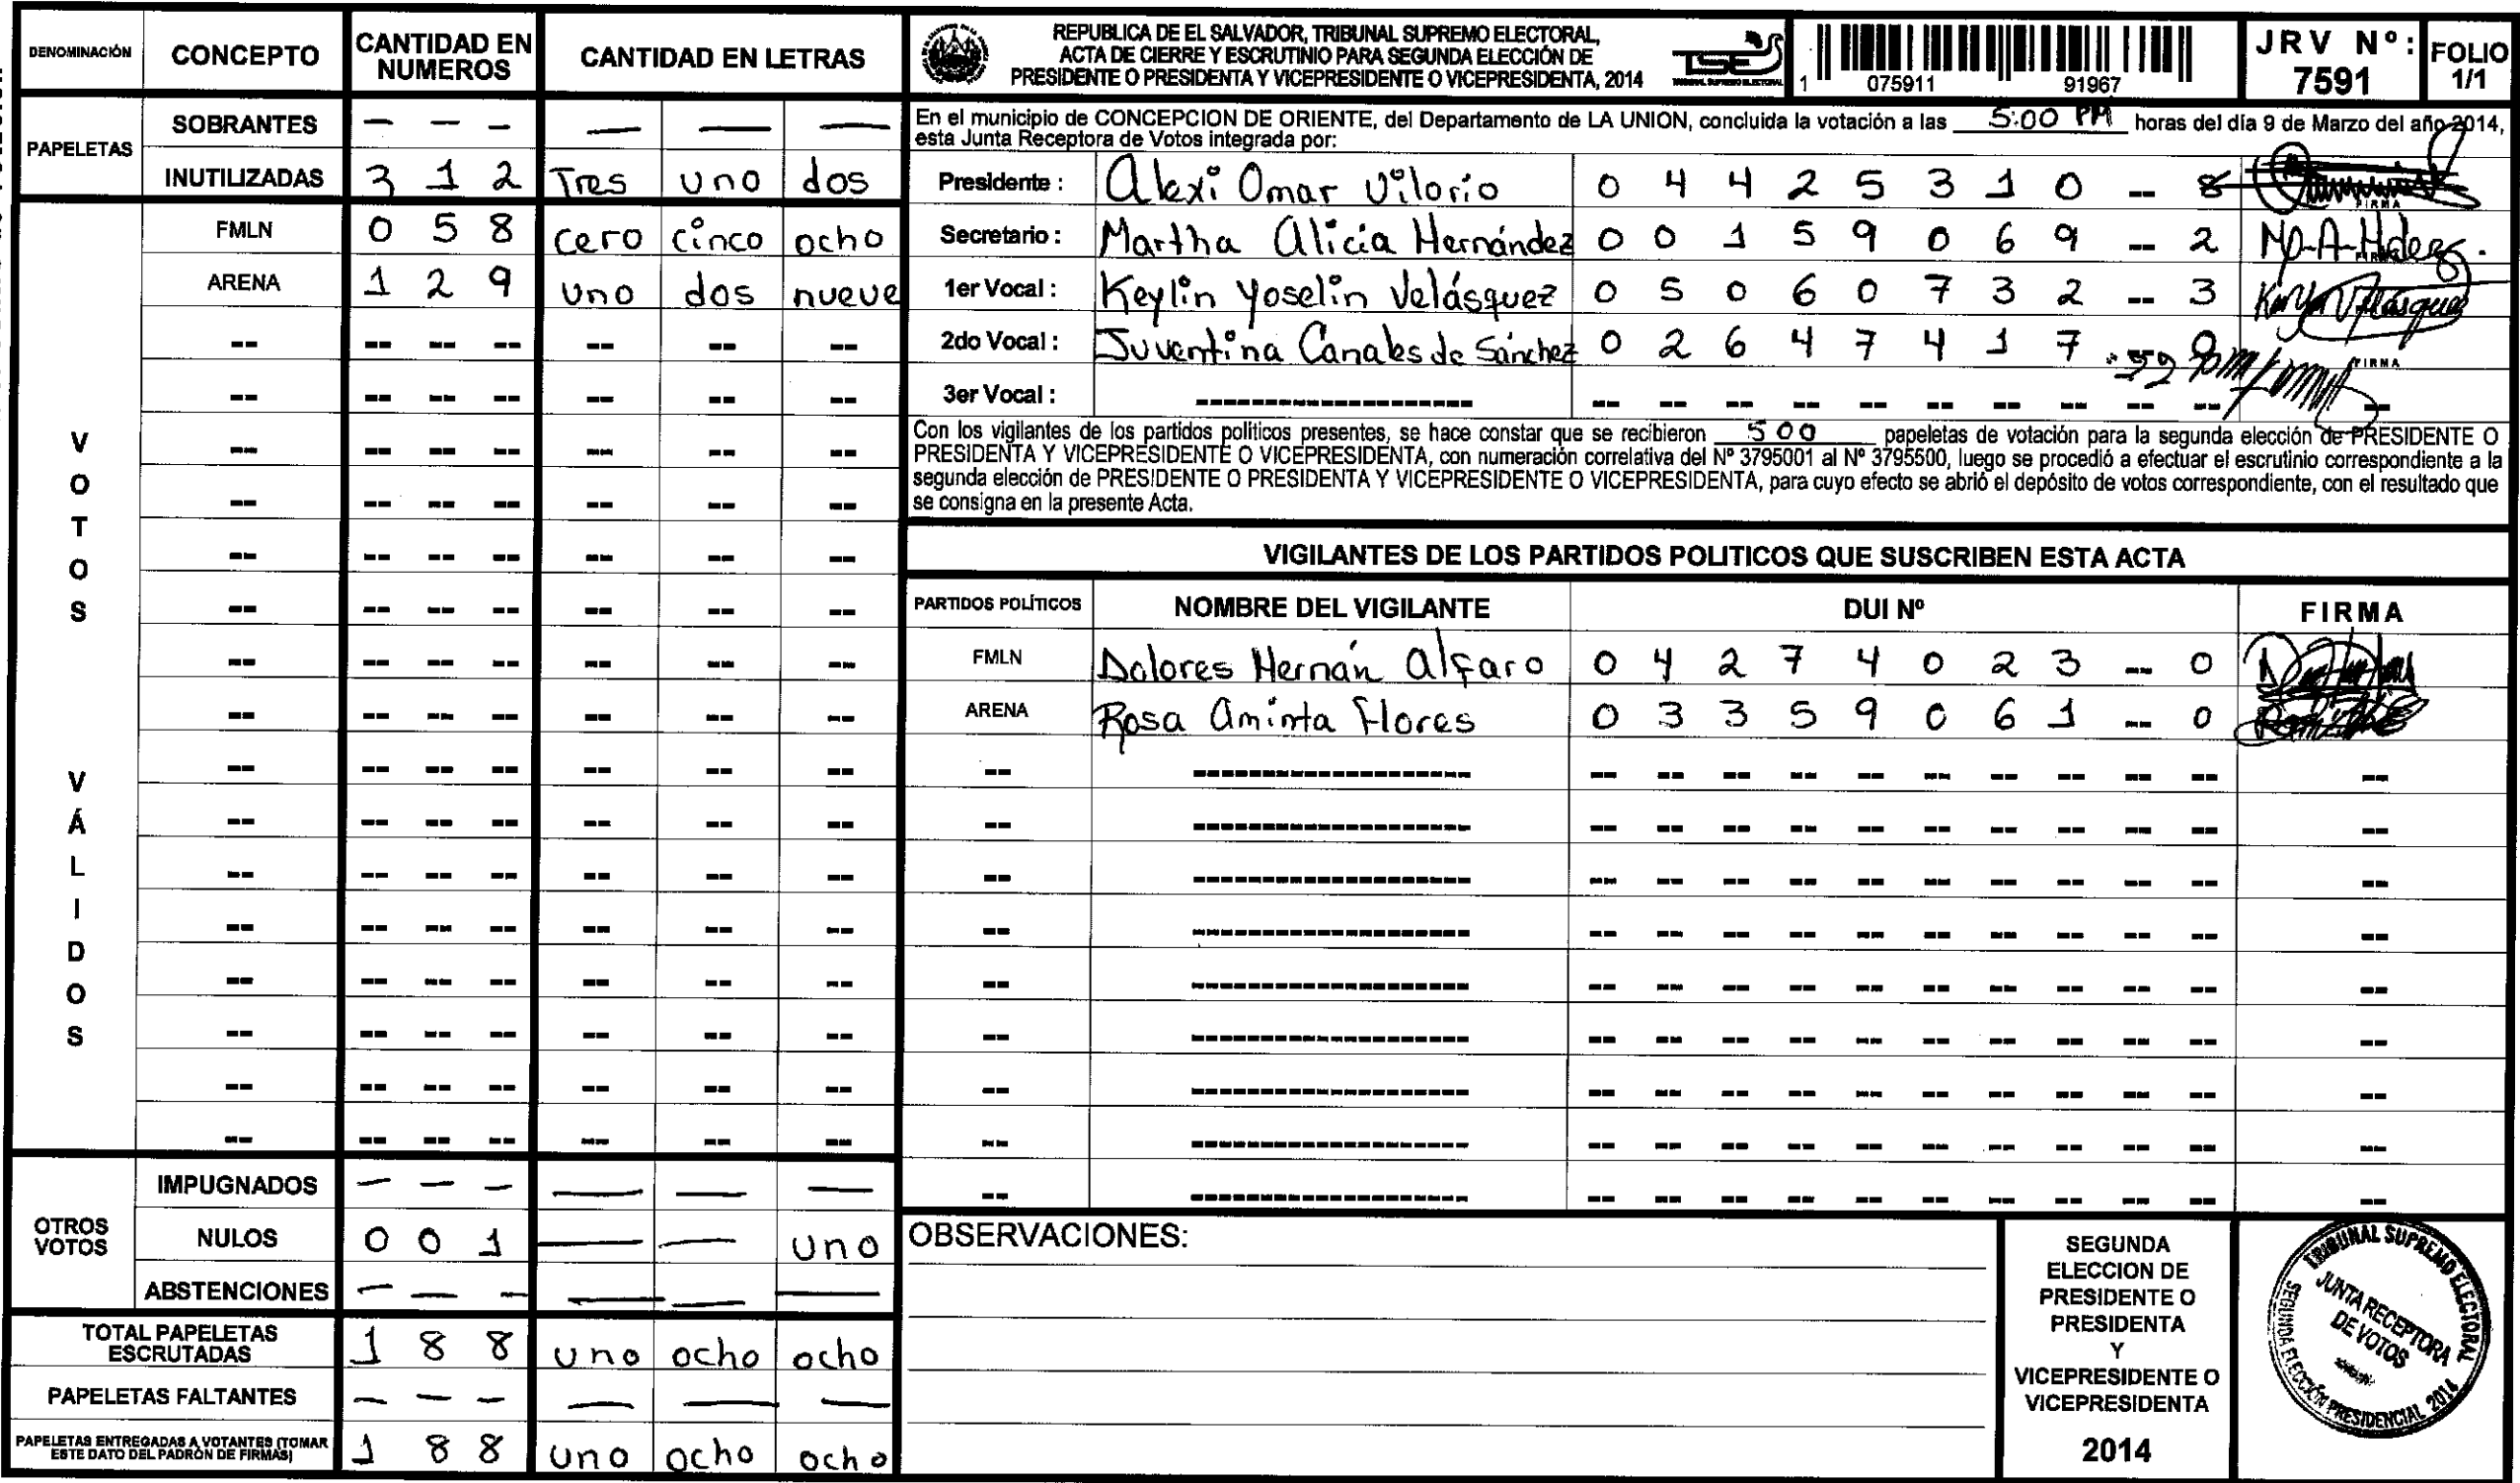 DENOMINACIÓN CONCEPTO CANTIDAD EN NUMEROS CANTIDAD EN LETRAS
PAPELETAS
SOBRANTES — — — — — —
INUTILIZADAS 3 1 2 Tres uno dos
VOTOS VÁLIDOS
FMLN 0 5 8 cero cinco ocho
ARENA 1 2 9 uno dos nueve
OTROS VOTOS
IMPUGNADOS — — — — — —
NULOS 0 0 1 — — uno
ABSTENCIONES — — — — — —
TOTAL PAPELETAS ESCRUTADAS 1 8 8 uno ocho ocho
PAPELETAS FALTANTES — — — — — —
PAPELETAS ENTREGADAS A VOTANTES (TOMAR ESTE DATO DEL PADRÓN DE FIRMAS) 1 8 8 uno ocho ocho
REPUBLICA DE EL SALVADOR, TRIBUNAL SUPREMO ELECTORAL,
ACTA DE CIERRE Y ESCRUTINIO PARA SEGUNDA ELECCIÓN DE
PRESIDENTE O PRESIDENTA Y VICEPRESIDENTE O VICEPRESIDENTA, 2014
TSE
1 075911 91967
JRV Nº: 7591
FOLIO 1/1
En el municipio de CONCEPCION DE ORIENTE, del Departamento de LA UNION, concluida la votación a las 5:00 PM horas del día 9 de Marzo del año 2014,
esta Junta Receptora de Votos integrada por:
Presidente : Alexi Omar Vilorio 0 4 4 2 5 3 1 0 -- 8
Secretario : Martha Alicia Hernández 0 0 1 5 9 0 6 9 -- 2
1er Vocal : Keylin Yoselin Velásquez 0 5 0 6 0 7 3 2 -- 3
2do Vocal : Juventina Canales de Sánchez 0 2 6 4 7 4 1 7
3er Vocal :
Con los vigilantes de los partidos políticos presentes, se hace constar que se recibieron 500 papeletas de votación para la segunda elección de PRESIDENTE O
PRESIDENTA Y VICEPRESIDENTE O VICEPRESIDENTA, con numeración correlativa del Nº 3795001 al Nº 3795500, luego se procedió a efectuar el escrutinio correspondiente a la
segunda elección de PRESIDENTE O PRESIDENTA Y VICEPRESIDENTE O VICEPRESIDENTA, para cuyo efecto se abrió el depósito de votos correspondiente, con el resultado que
se consigna en la presente Acta.
VIGILANTES DE LOS PARTIDOS POLITICOS QUE SUSCRIBEN ESTA ACTA
PARTIDOS POLÍTICOS NOMBRE DEL VIGILANTE DUI Nº FIRMA
FMLN Dolores Hernán Alfaro 0 4 2 7 4 0 2 3 -- 0
ARENA Rosa Aminta Flores 0 3 3 5 9 0 6 1 -- 0
OBSERVACIONES:
SEGUNDA
ELECCION DE
PRESIDENTE O
PRESIDENTA
Y
VICEPRESIDENTE O
VICEPRESIDENTA
2014
TRIBUNAL SUPREMO ELECTORAL
JUNTA RECEPTORA
DE VOTOS
SEGUNDA ELECCIÓN PRESIDENCIAL 2014